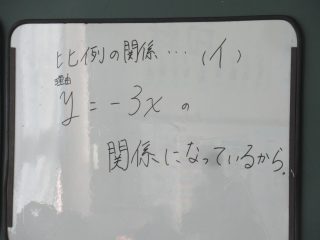 比例の関係…(イ)
理由
y = -3x の
関係になっているから.